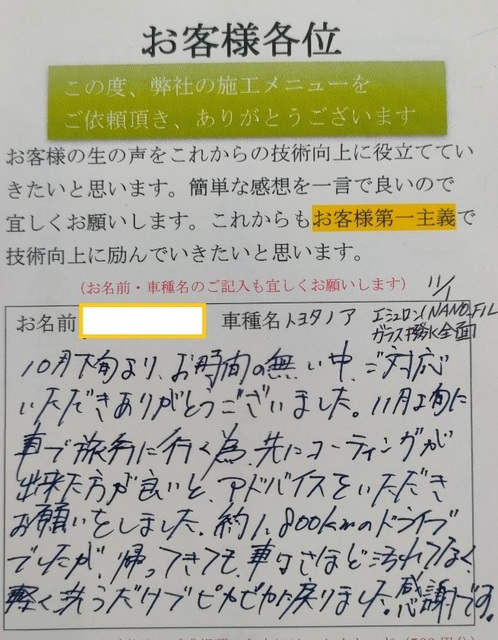 お客様各位
この度、弊社の施工メニューを
ご依頼頂き、ありがとうございます
お客様の生の声をこれからの技術向上に役立ててい
きたいと思います。簡単な感想を一言で良いので
宜しくお願いします。これからもお客様第一主義で
技術向上に励んでいきたいと思います。
(お名前・車種名のご記入も宜しくお願いします)
11/1
お名前 車種名 トヨタノア エシュロンNANO-FIL
ガラス撥水全面
10月下旬より、お時間の無い中、ご対応
いただきありがとうございました。11月上旬に
車で旅行に行く為、先にコーティングが
出来た方が良いと、アドバイスをいただき
お願いをしました。約1,800kmのドライブ
でしたが、帰ってきても、車はさほど汚れてなく
軽く洗うだけでピカピカに戻りました。感謝です。